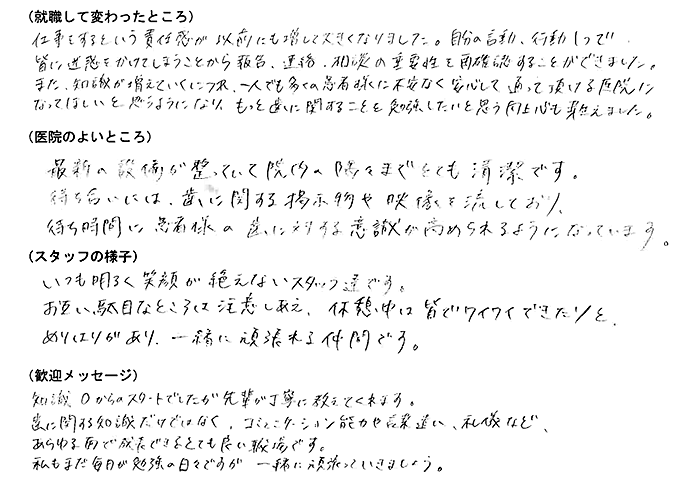 （就職して変わったところ）
仕事をするという責任感が以前にも増して大きくなりました。自分の言動、行動1つで
皆に迷惑をかけてしまうことから報告、連絡、相談の重要性を再確認することができました。
また、知識が増えていくにつれ、一人でも多くの患者様に不安なく安心して通って頂ける医院に
なってほしいと思うようになり、もっと歯に関することを勉強したいと思う向上心も芽生えました。
（医院のよいところ）
最新の設備が整っていて院内の隅々までとても清潔です。
待ち合いには、歯に関する掲示物や映像を流しており、
待ち時間に患者様の歯に対する意識が高められるようになっています。
（スタッフの様子）
いつも明るく笑顔が絶えないスタッフ達です。
お互い駄目なところは注意しあえ、休憩中は皆でワイワイできたりと、
めりはりがあり、一緒に頑張れる仲間です。
（歓迎メッセージ）
知識0からのスタートでしたが先輩が丁寧に教えてくれます。
歯に関する知識だけではなく、コミュニケーション能力や言葉遣い、礼儀など、
あらゆる面で成長できるとても良い職場です。
私もまだ毎日が勉強の日々ですが一緒に頑張っていきましょう。